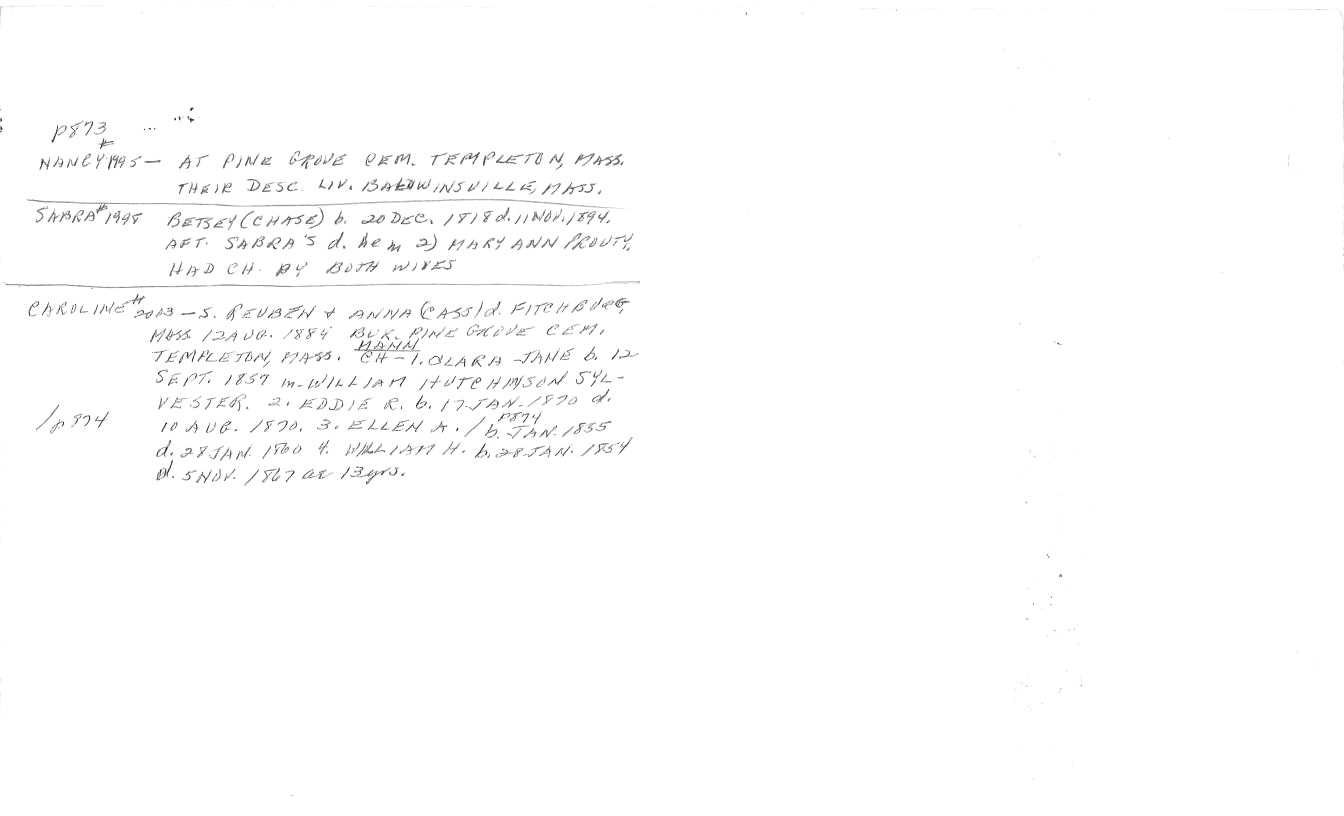 p873
NANCY #1995 — AT PINE GROVE CEM. TEMPLETON, MASS.
THEIR DESC. LIV. BALDWINSVILLE, MASS.
SABRA #1998 BETSEY (CHASE) b. 20 DEC. 1818 d. 11 NOV. 1894.
AFT. SABRA'S d. he m 2) MARY ANN PROUTY.
HAD CH. BY BOTH WIVES
CAROLINE # 2013 — S. REUBEN + ANNA (CASS) d. FITCHBURG,
MASS 12 AUG. 1884 BUR. PINE GROVE CEM.
TEMPLETON, MASS. MANN CH — 1. CLARA JANE b. 12
SEPT. 1857 m. WILLIAM HUTCHINSON SYL-
VESTER. 2. EDDIE R. b. 17 JAN. 1870 d.
/p874 10 AUG. 1870. 3. ELLEN A. / p874 b. JAN. 1855
d. 28 JAN. 1860 4. WILLIAM H. b. 28 JAN. 1854
d. 5 NOV. 1867 ae 13 yrs.